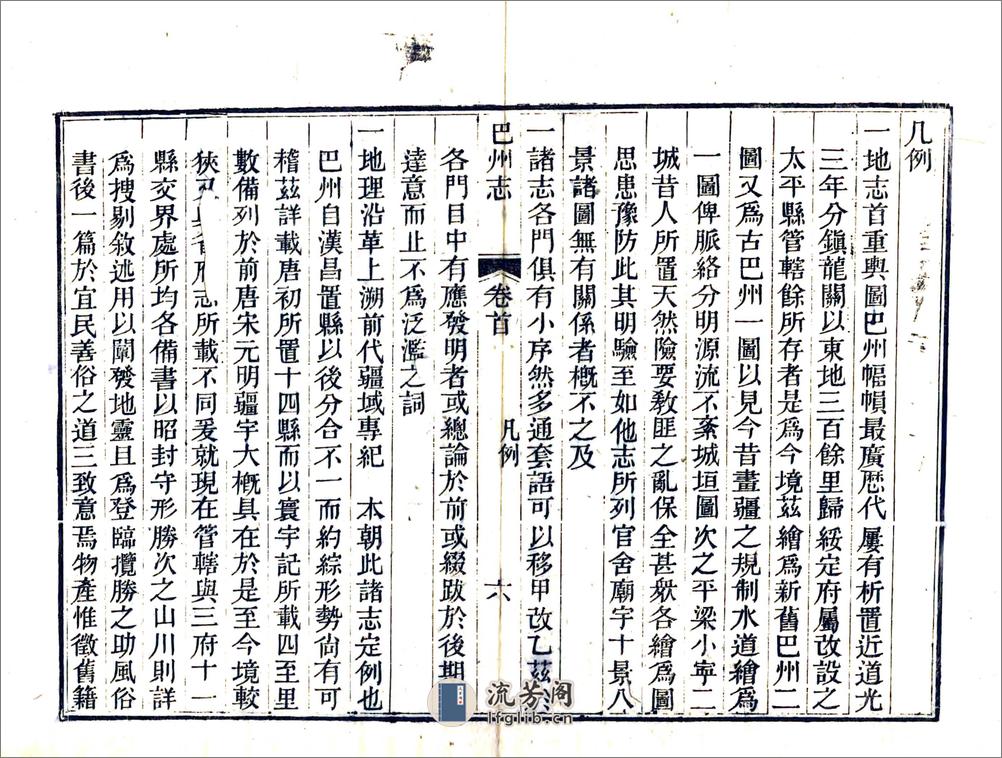 凡例
一地志首重輿圖巴州幅幀最廣歴代屢有析置近道光
三年分鎭龍關以東地三百餘里歸綏定府屬改設之
太平縣管轄餘所存者是爲今境茲繪爲新舊巴州二
圖又爲古巴州一圖以見今昔畫疆之規制水道繪爲
一圖俾脈絡分明源流不紊城垣圖次之平梁小寧二
城昔人所置天然險要敎匪之亂保全甚衆各繪爲圖
思患豫防此其明驗至如他志所列官舍廟宇十景八
景諸圖無有關係者槪不之及
一諸志各門俱有小序然多通套語可以移甲改乙茲於
巴州志 卷首 凡例 六
各門目中有應發明者或總論於前或綴跋於後期
達意而止不爲泛濫之詞
一地理沿革上溯前代疆域專紀 本朝此諸志定例也
巴州自漢昌置縣以後分合不一而約綜形勢尙有可
稽茲詳載唐初所置十四縣而以寰宇記所載四至里
數備列於前唐宋元明疆宇大槪具在於是至今境較
狹 志所載不同爰就現在管轄與三府十一
縣交界處所均各備書以昭封守形勝次之山川則詳
爲搜剔敘述用以闡發地靈且爲登臨攬勝之助風俗
書後一篇於宜民善俗之道三致意焉物產惟徵舊籍
流芳阁
lfglib.cn